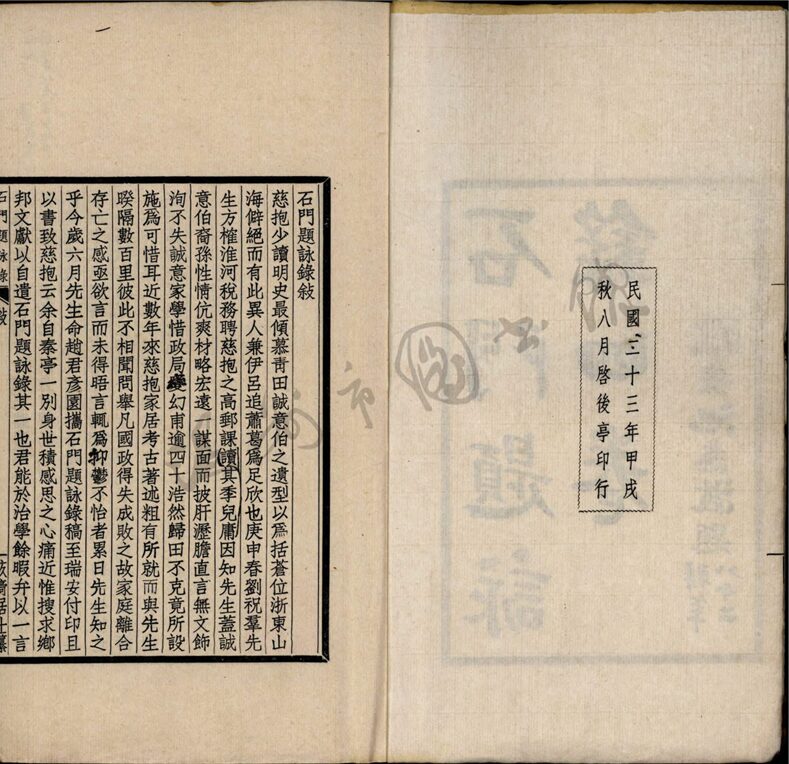 民國三十三年甲戌
秋八月啓後亭印行
石門題詠錄敍
慈抱少讀明史最傾慕靑田誠意伯之遺型以爲括蒼位浙東山
海僻絕而有此異人兼伊呂追蕭葛爲足欣也庚申春劉祝羣先
生方榷淮河稅務聘慈抱之高郵課讀其季兒庸因知先生蓋誠
意伯裔孫性情伉爽材略宏遠一謀面而披肝瀝膽直言無文飾
洵不失誠意家學惜政局變幻甫逾四十浩然歸田不克竟所設
施爲可惜耳近數年來慈抱家居考古著述粗有所就而與先生
暌隔數百里彼此不相聞問舉凡國政得失成敗之故家庭離合
存亡之感亟欲言而未得晤言輒爲抑鬱不怡者累日先生知之
乎今歲六月先生命趙君彥園攜石門題詠錄稿至瑞安付印且
以書致慈抱云余自秦亭一別身世積感思之心痛近惟搜求鄉
邦文獻以自遣石門題詠錄其一也君能於治學餘暇弁以一言
石門題詠錄 敍